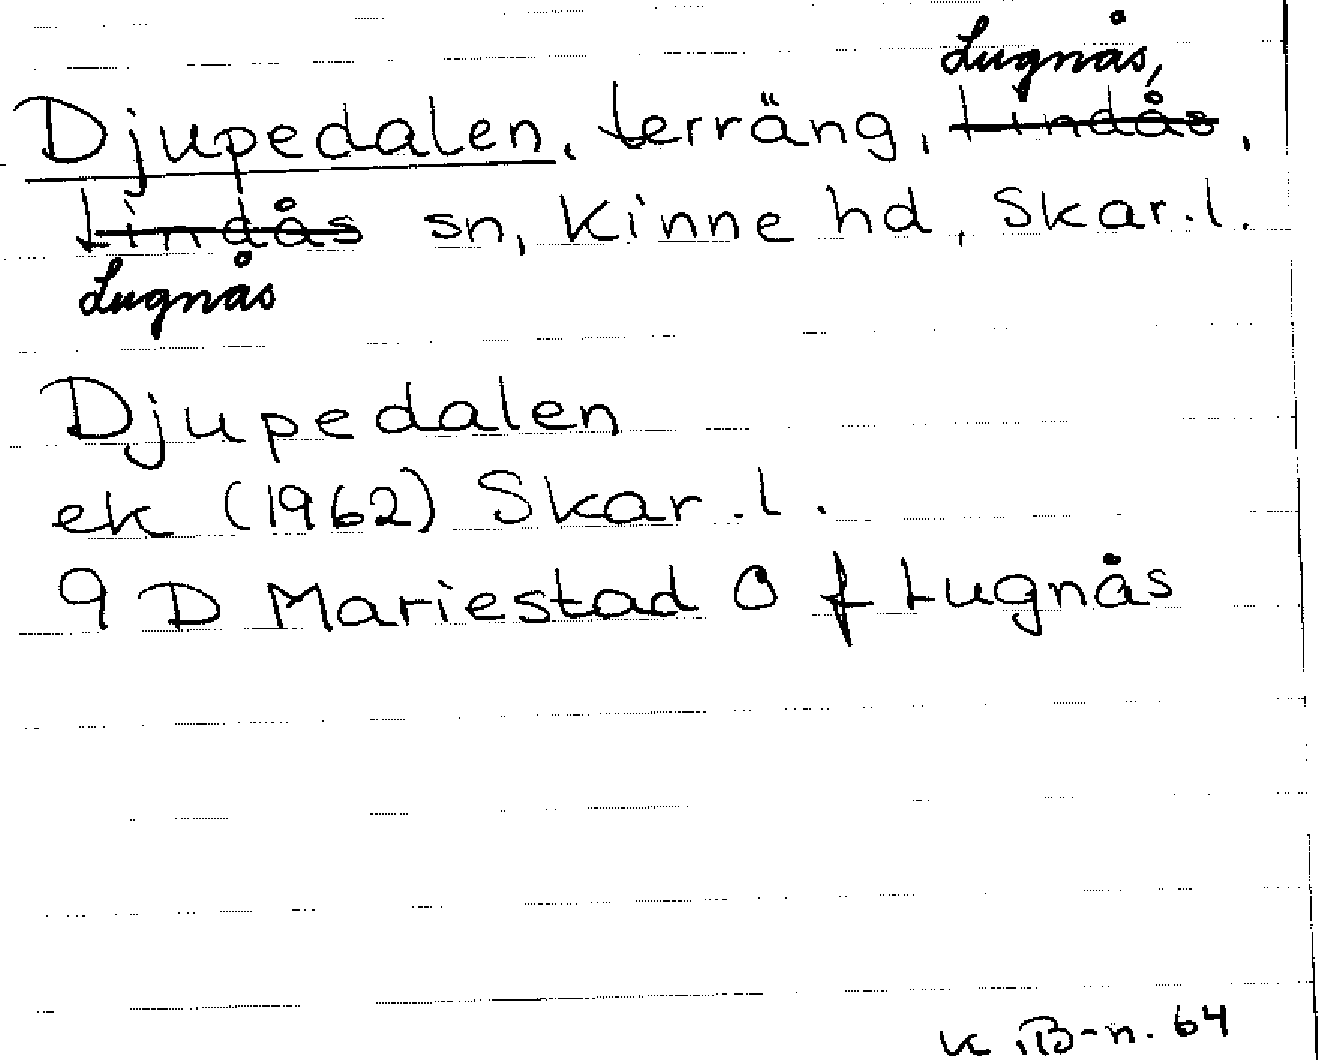 Lugnås,
Djupedalen, terräng, Lindås,
Lindås sn, Kinne hd, Skar.l.
Lugnås
Djupedalen
ek (1962) Skar.l.
9 D Mariestad O f Lugnås
K B-n. 64